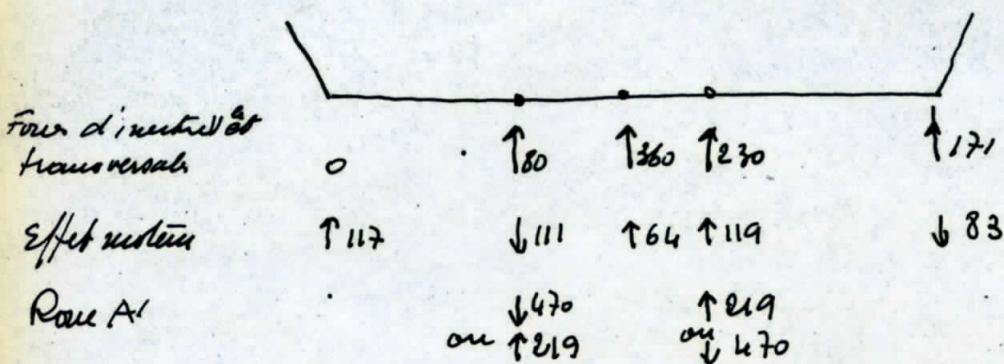 Forces d'inertie et
transversales 0 ↑80 ↑360 ↑230 ↑171
Effet moteur ↑117 ↓111 ↑64 ↑119 ↓83
Roue AV ↓470 ↑219
ou ↑219 ou ↓470